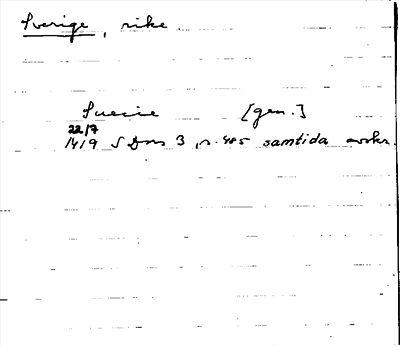 Sverige, rike
Suecie [gen.]
22/7
1419 SDns 3, s. 485 samtida avskr.